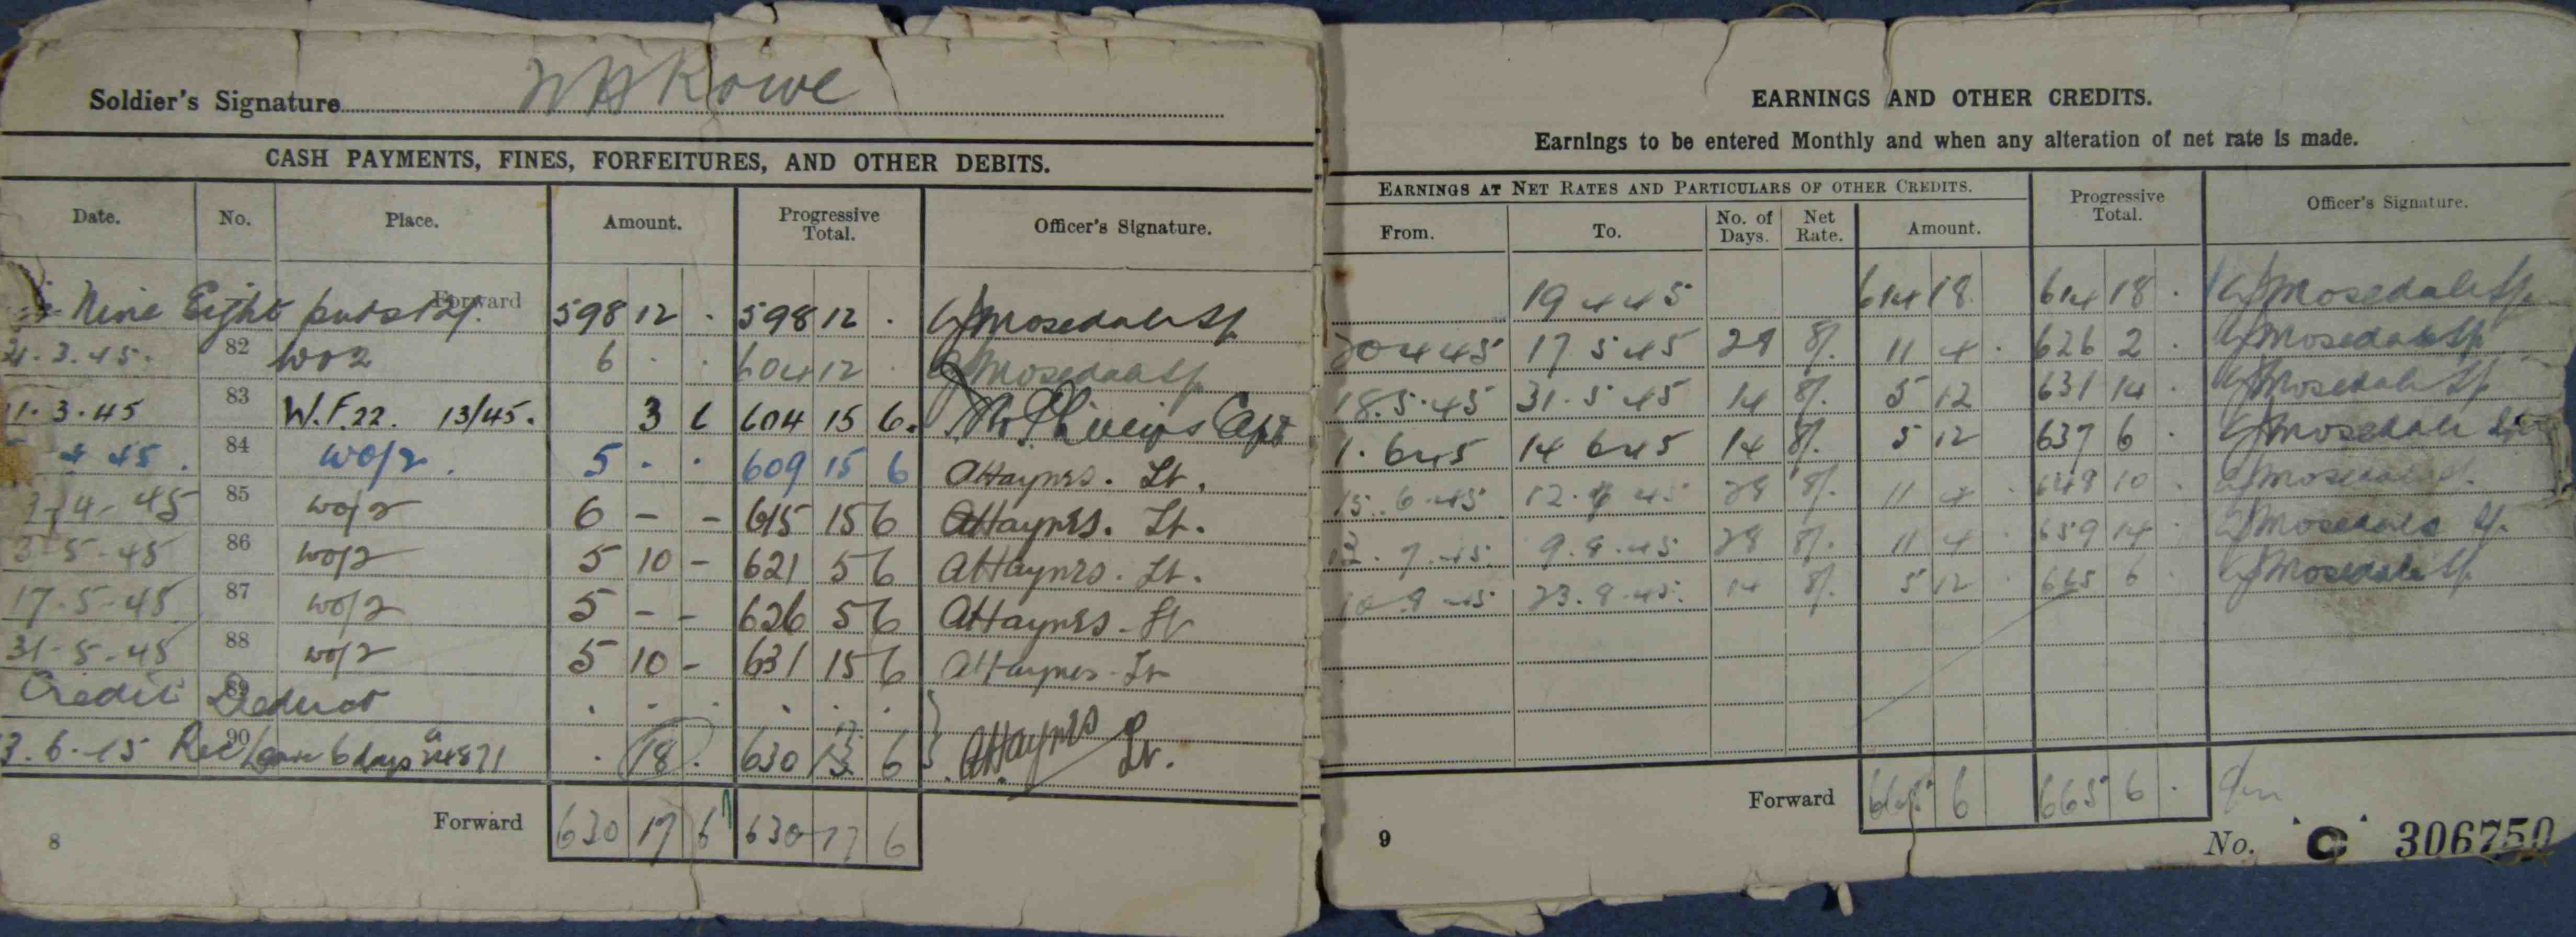 Soldier's Signature WH Rowe
CASH PAYMENTS, FINES, FORFEITURES, AND OTHER DEBITS.
Date. No. Place. Amount. Progressive Total. Officer's Signature.
Nine Eight Forward 598 12 . 598 12 . Mosedale
.3.45. 82 WO2 6 . . 604 12 . Mosedale
1.3.45 83 W.F.22. 13/45. 3 6 604 15 6. Capt
4 45. 84 WO/2. 5 . . 609 15 6 AHaynes. Lt.
4-45 85 WO/2 6 - - 615 15 6 AHaynes. Lt.
5-45 86 WO/2 5 10 - 621 5 6 AHaynes. Lt.
17-5-45 87 WO/2 5 - - 626 5 6 AHaynes. Lt
31-5-45 88 WO/2 5 10 - 631 15 6 AHaynes. Lt
Credit 89 Deduct . . . . . .
3.6.45 90 Rec Leave 6 days . 18 . 630 6 AHaynes Lt.
Forward 630 17 6 630 17 6
8
EARNINGS AND OTHER CREDITS.
Earnings to be entered Monthly and when any alteration of net rate is made.
EARNINGS AT NET RATES AND PARTICULARS OF OTHER CREDITS. Progressive Total. Officer's Signature.
From. To. No. of Days. Net Rate. Amount.
19 4 45 614 18 614 18 . Mosedale
20 4 45 17 5 45 28 8/. 11 4 . 626 2 . Mosedale
18.5.45 31.5 45 14 8/. 5 12 631 14 . Mosedale
1.6 45 14 6 45 14 8/. 5 12 637 6 . Mosedale
15.6.45 12.7 45 28 8/. 11 4 . 648 10 . Mosedale
13.7.45 9.8.45 28 8/. 11 4 . 659 14 . Mosedale
10 8 45 23.8.45. 14 8/. 5 12 665 6 . Mosedale
Forward 665 6 665 6 .
9
No. C 306750